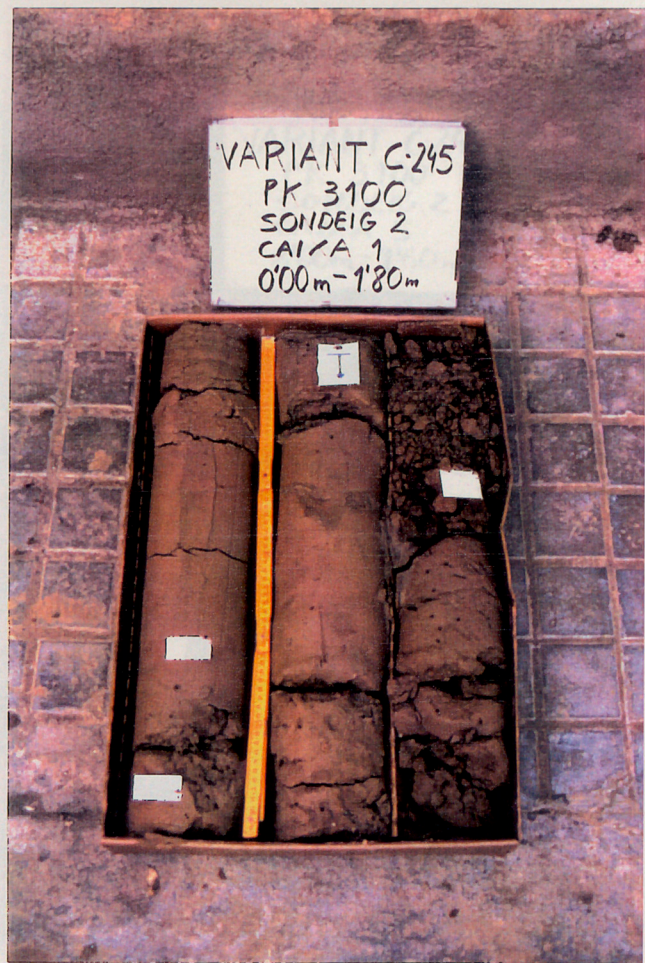 VARIANT C-245
PK 3100
SONDEIG 2
CAIXA 1
0'00m-1'80m
T